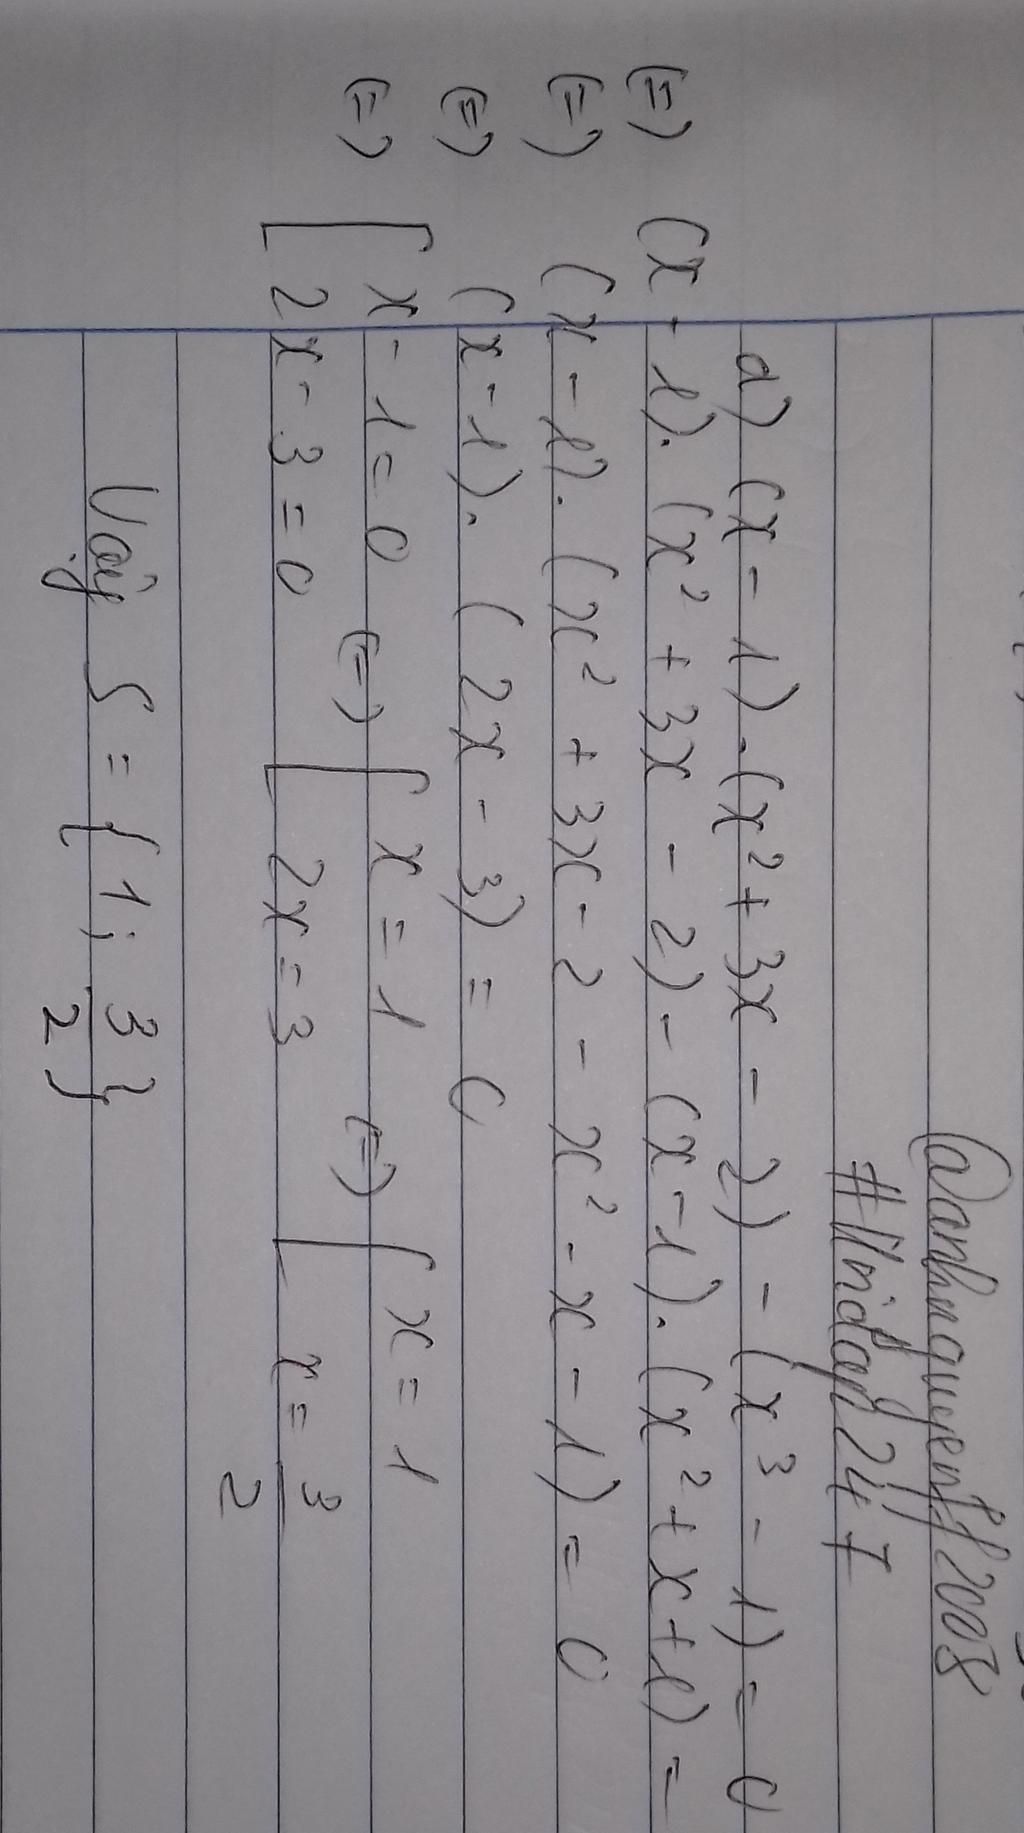 @anhnguyenff2008
#Uniday24 7
a) (x - 1).(x² + 3x - 2) - (x³ - 1) = 0
(=) (x - 1).(x² + 3x - 2) - (x - 1).(x² + x + 1) =
(=) (x - 1).(x² + 3x - 2 - x² - x - 1) = 0
(=) (x - 1).(2x - 3) = 0
(=) [ x - 1 = 0 (=) [ x = 1 (=) [ x = 1
2x - 3 = 0 2x = 3 x = 3/2
Vậy S = {1; 3/2}